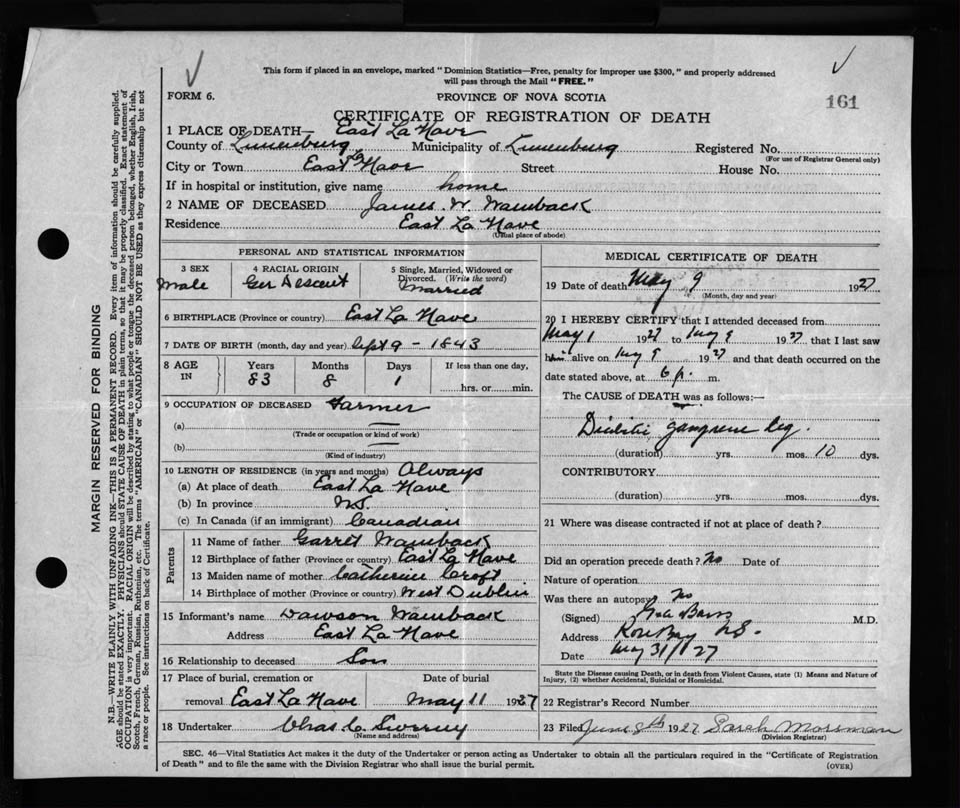 This form if placed in an envelope, marked "Dominion Statistics—Free, penalty for improper use $300," and properly addressed
will pass through the Mail "FREE."
FORM 6.
PROVINCE OF NOVA SCOTIA
161
CERTIFICATE OF REGISTRATION OF DEATH
1 PLACE OF DEATH— East La Have
County of Lunenburg Municipality of Lunenburg Registered No.
(For use of Registrar General only)
City or Town East La Have Street House No.
If in hospital or institution, give name home
2 NAME OF DECEASED James W. Wamback
Residence East La Have
(Usual place of abode)
PERSONAL AND STATISTICAL INFORMATION
3 SEX
Male
4 RACIAL ORIGIN
Ger Descent
5 Single, Married, Widowed or
Divorced. (Write the word)
Married
6 BIRTHPLACE (Province or country) East La Have
7 DATE OF BIRTH (month, day and year) Sept 9 - 1843
8 AGE
IN
Years Months Days If less than one day,
83 8 1 hrs. or min.
9 OCCUPATION OF DECEASED Farmer
(a)
(Trade or occupation or kind of work)
(b)
(Kind of industry)
10 LENGTH OF RESIDENCE (in years and months) Always
(a) At place of death East La Have
(b) In province N.S.
(c) In Canada (if an immigrant) Canadian
Parents
11 Name of father Garret Wamback
12 Birthplace of father (Province or country) East La Have
13 Maiden name of mother Catherine Croft
14 Birthplace of mother (Province or country) West Dublin
15 Informant's name Dawson Wamback
Address East La Have
16 Relationship to deceased Son
17 Place of burial, cremation or Date of burial
removal East La Have May 11 1927
18 Undertaker Chas. C.
(Name and address)
MEDICAL CERTIFICATE OF DEATH
19 Date of death May 9 1927
(Month, day and year)
20 I HEREBY CERTIFY that I attended deceased from
May 1 1927 to May 9 1927 that I last saw
him alive on May 9 1927 and that death occurred on the
date stated above, at 6 p. m.
The CAUSE of DEATH was as follows:—
Diabetic gangrene leg.
(duration) yrs. mos. 10 dys.
CONTRIBUTORY
(duration) yrs. mos. dys.
21 Where was disease contracted if not at place of death?
Did an operation precede death? No Date of
Nature of operation
Was there an autopsy No
(Signed) M.D.
Address Rose Bay N.S.
Date May 31/1927
State the Disease causing Death, or in death from Violent Causes, state (1) Means and Nature of
Injury, (2) whether Accidental, Suicidal or Homicidal.
22 Registrar's Record Number
23 Filed June 8th 1927 Sarah Mossman
(Division Registrar)
SEC. 46—Vital Statistics Act makes it the duty of the Undertaker or person acting as Undertaker to obtain all the particulars required in the "Certificate of Registration
of Death" and to file the same with the Division Registrar who shall issue the burial permit.
(OVER)
MARGIN RESERVED FOR BINDING
N.B.—WRITE PLAINLY WITH UNFADING INK—THIS IS A PERMANENT RECORD. Every item of information should be carefully supplied.
AGE should be stated EXACTLY. PHYSICIANS should STATE CAUSE OF DEATH in plain terms, so that it may be properly classified. Exact statement of
OCCUPATION is very important. RACIAL ORIGIN will be described by stating to what people or tongue the deceased person belonged, whether English, Irish,
Scotch, French, German, Russian, Ruthenian, etc. The terms "AMERICAN" or "CANADIAN" SHOULD NOT BE USED as they express citizenship but not
a race or people. See instructions on back of Certificate.